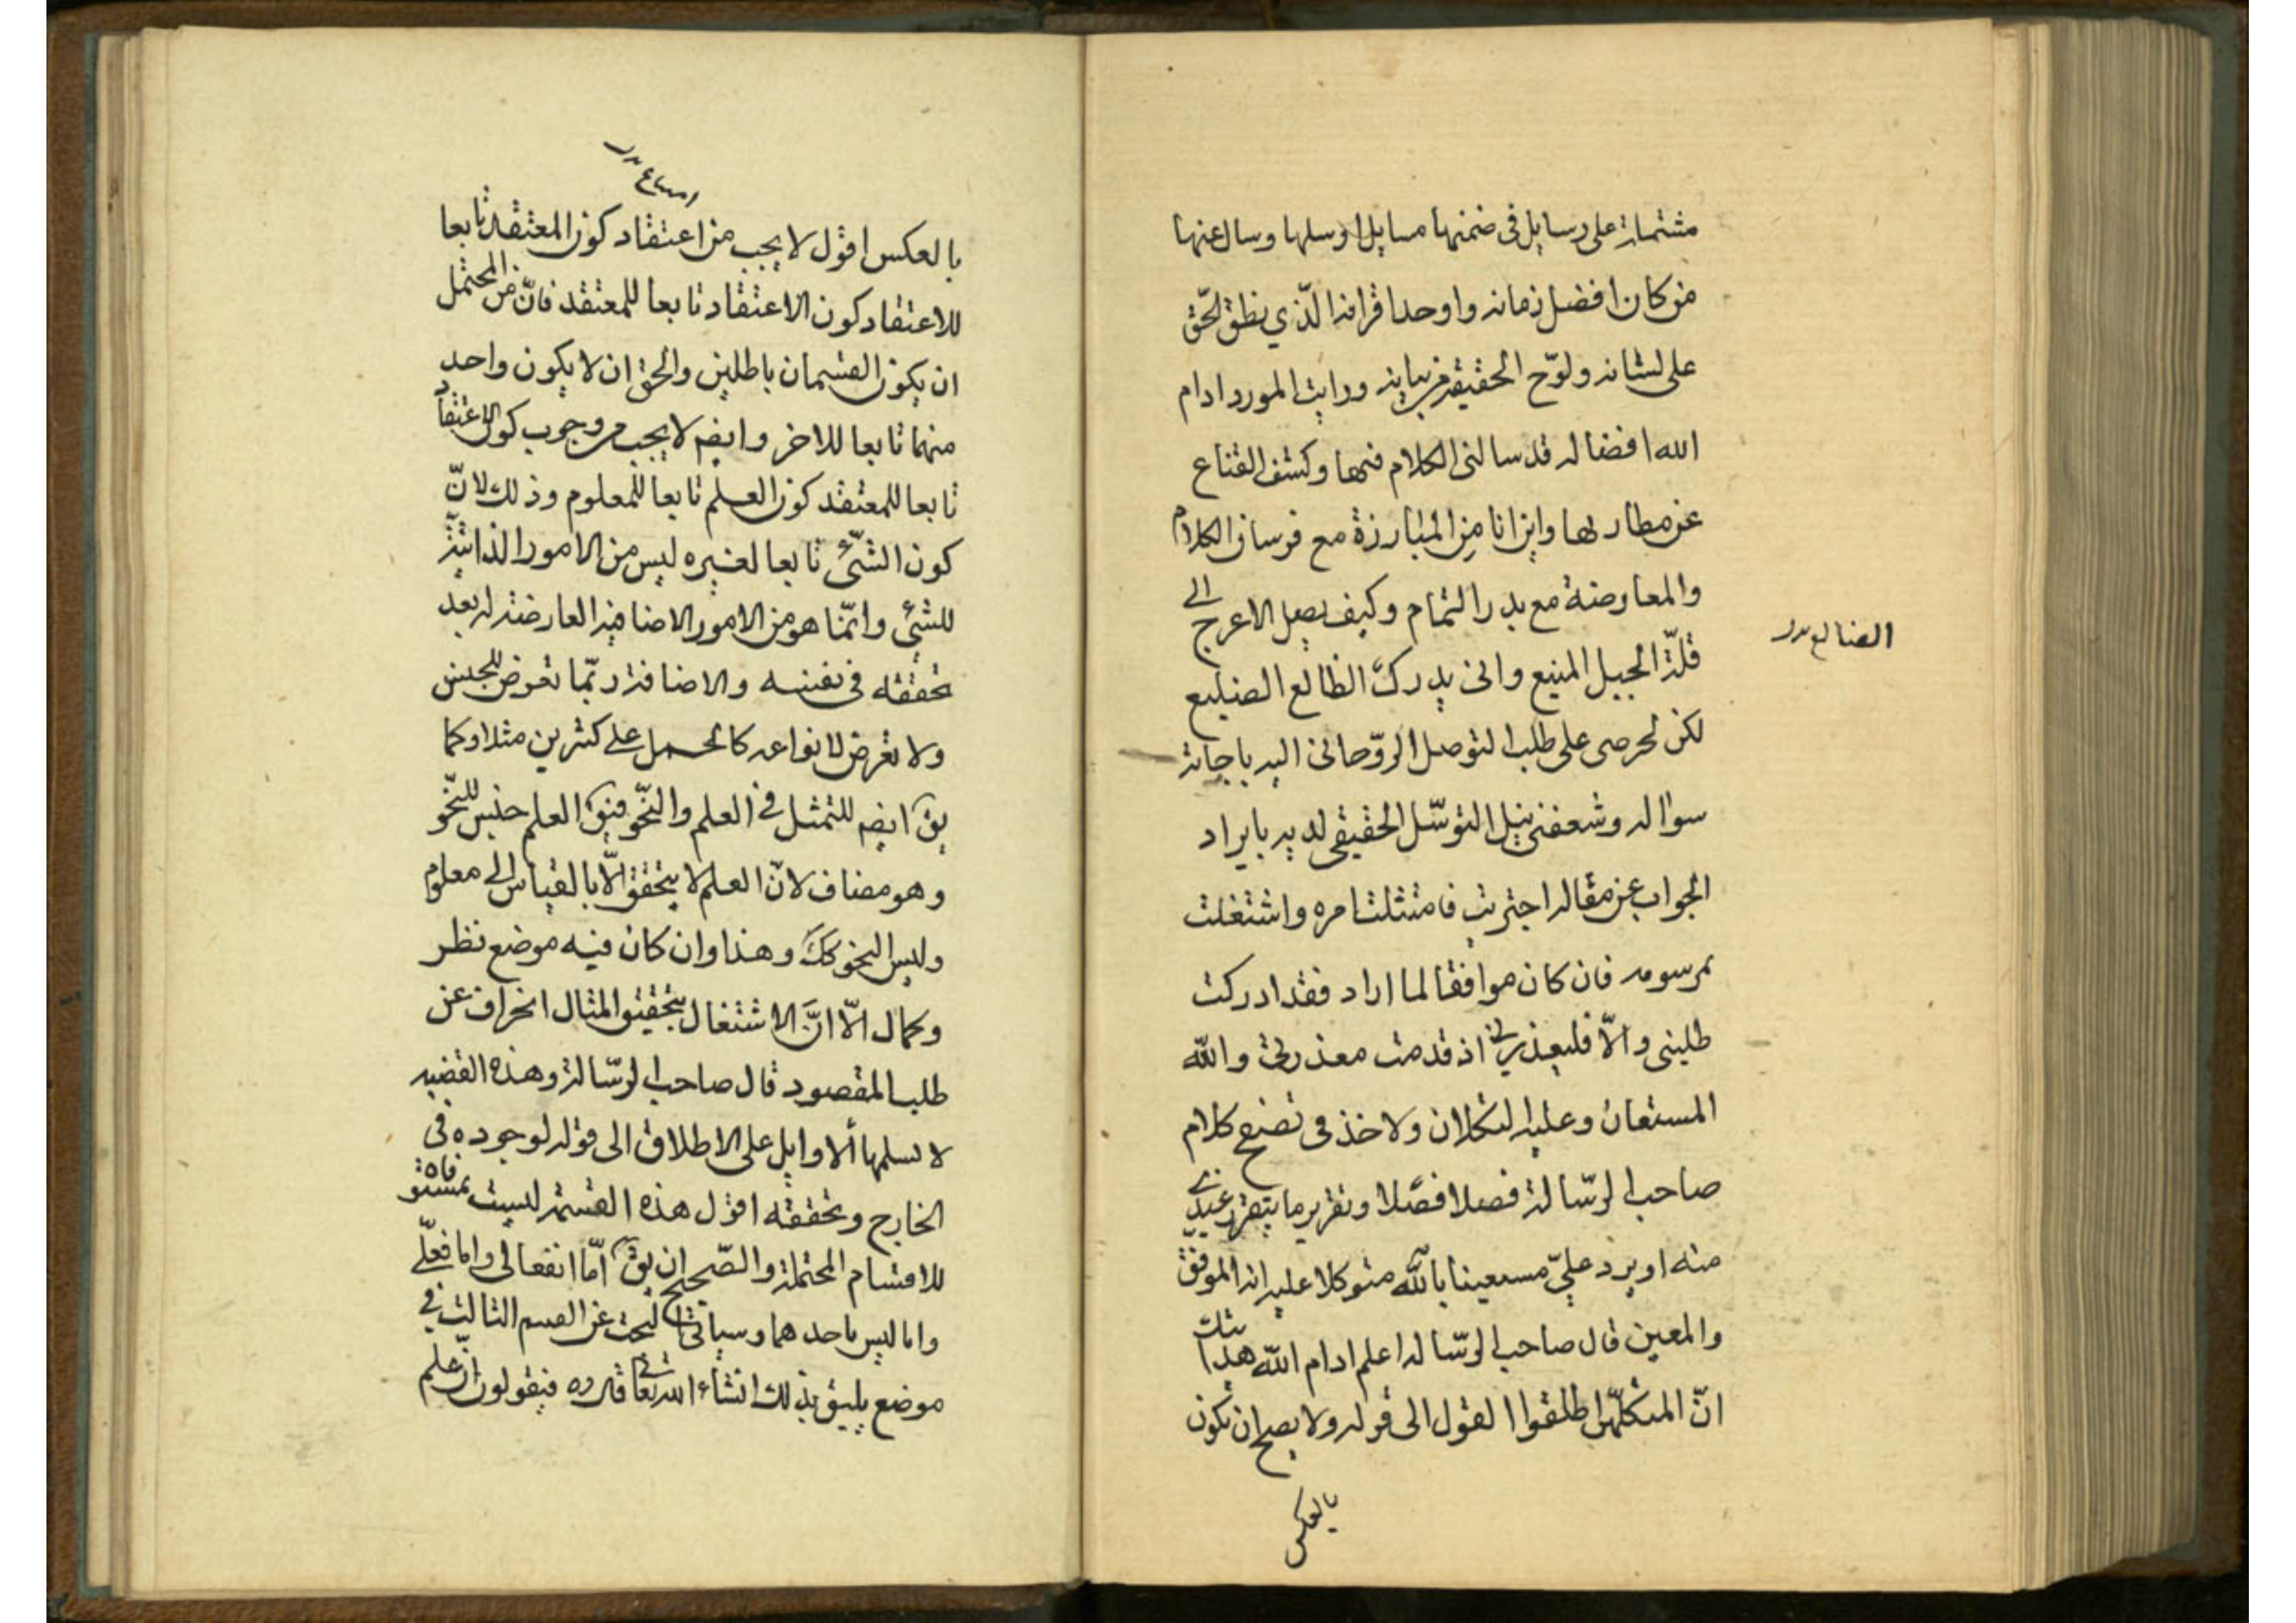 مشتملة على رسايل فى ضمنها مسايل ارسلها وسال عنها
من كان افضل زمانه واوحد اقرانه الّذي ينطق الحّق
على لسانه ولوّح الحقيقه من بيانه ورايت المورد ادام
الله افضاله قد سالنى الكلام فيها وكشف القناع
عن مطاربها واين انا مِن المبارزة مع فرسان الكلام
والمعاوضة مع بدر التمام وكيف يصل الاعرج الى
قلّة الجبل المنيع وانى يدرك الظالع الضليع
الضالع
لكن لحرصى على طلب التوصل الروّحانى اليه باجابة
سواله وشعفنى بنيل التوسّل الحقيقى لديه بايراد
الجواب عن مقاله اجتريت فامتثلت امره واشتغلت
بمرسومه فان كان موافقا لما اراد فقد ادركت
طلبتى والّا فليعذرنى اذ قدمت معذرتى والله
المستعان وعليه التكلان ولاخذ فى تصفح كلام
صاحب الرسّالة فصلا فصلا وتقرير ما يتقرر عندي
منه او يرد علىّ مستعينا بالله متوكلا عليه انه الموفق
والمعين قال صاحب الرسّاله اعلم ادام الله هدايتك
انّ المتكلّمين اطلقوا القول الى قوله ولا يصح ان يكون
بالعكس
بالعكس اقول لا يجب من اعتقاد كون المعتقد تابعا
للاعتقاد كون الاعتقاد تابعا للمعتقد فانّ من المحتمل
ان يكون القسمان باطلين والحق ان لا يكون واحد
منهما تابعا للاخر وايضم لا يجب من وجوب كون الاعتقاد
تابعا للمعتقد كون العلم تابعا للمعلوم وذلك لانّ
كون الشّئ تابعا لغيره ليس من الامور الذاتيّة
للشئ وانّما هو من الامور الاضافية العارضة له بعد
تحققه فى نفسه والاضافة ربّما تعرض للجنس
ولا تعرض لانواعه كالحمل على كثيرين مثلا وكما
يق ايضم للتمثل فى العلم والنّحو فيق العلم جنس للنّحو
وهو مضاف لانّ العلم لا يتحقق الّا بالقياس الى معلوم
وليس النحو كك وهذا وان كان فيه موضع نظر
وكمال الّا انّ الاشتغال بتحقيق المثال انحراف عن
طلب المقصود قال صاحب الرسّالة وهذه القضيه
لا تسلمها الاوايل على الاطلاق الى قوله لوجوده فى
الخارج وتحققه اقول هذه القسمة ليست بمستوفاة
للاقسام المحتملة والصّحيح ان يق امّا انفعالى واما فعلّى
واما ليس باحدهما وسياتى البحث عن القسم الثالث فى
موضع يليق بذلك انشاء الله تعالى قدره فيقولون انّ علم